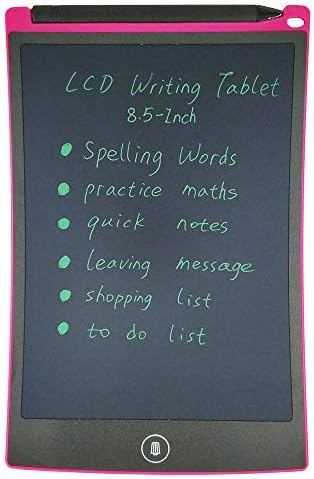 LCD Writing Tablet
8.5-Inch
Spelling Words
practice maths
quick notes
leaving message
shopping list
to do list